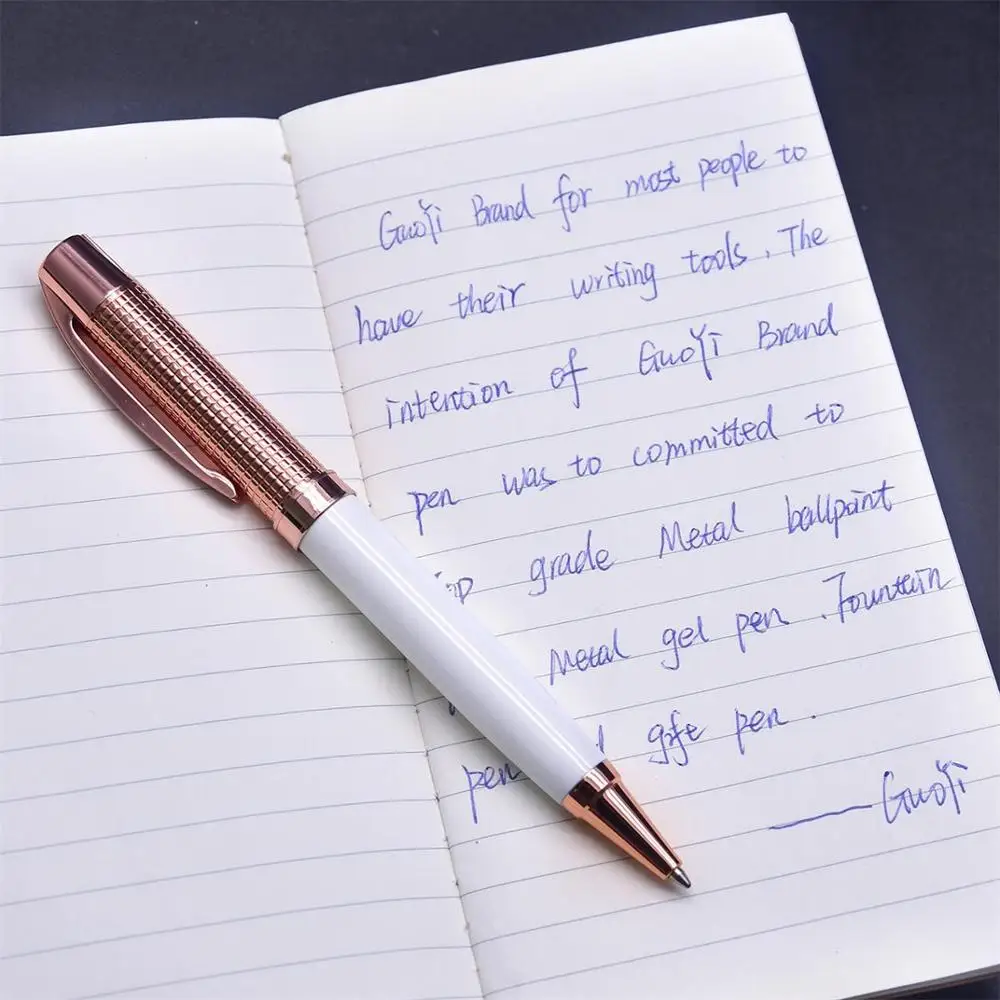 GuoYi Brand for most people to
have their writing tools. The
intention of GuoYi Brand
pen was to committed to
top grade Metal ballpoint
Metal gel pen. Fountain
pen gife pen.
——GuoYi